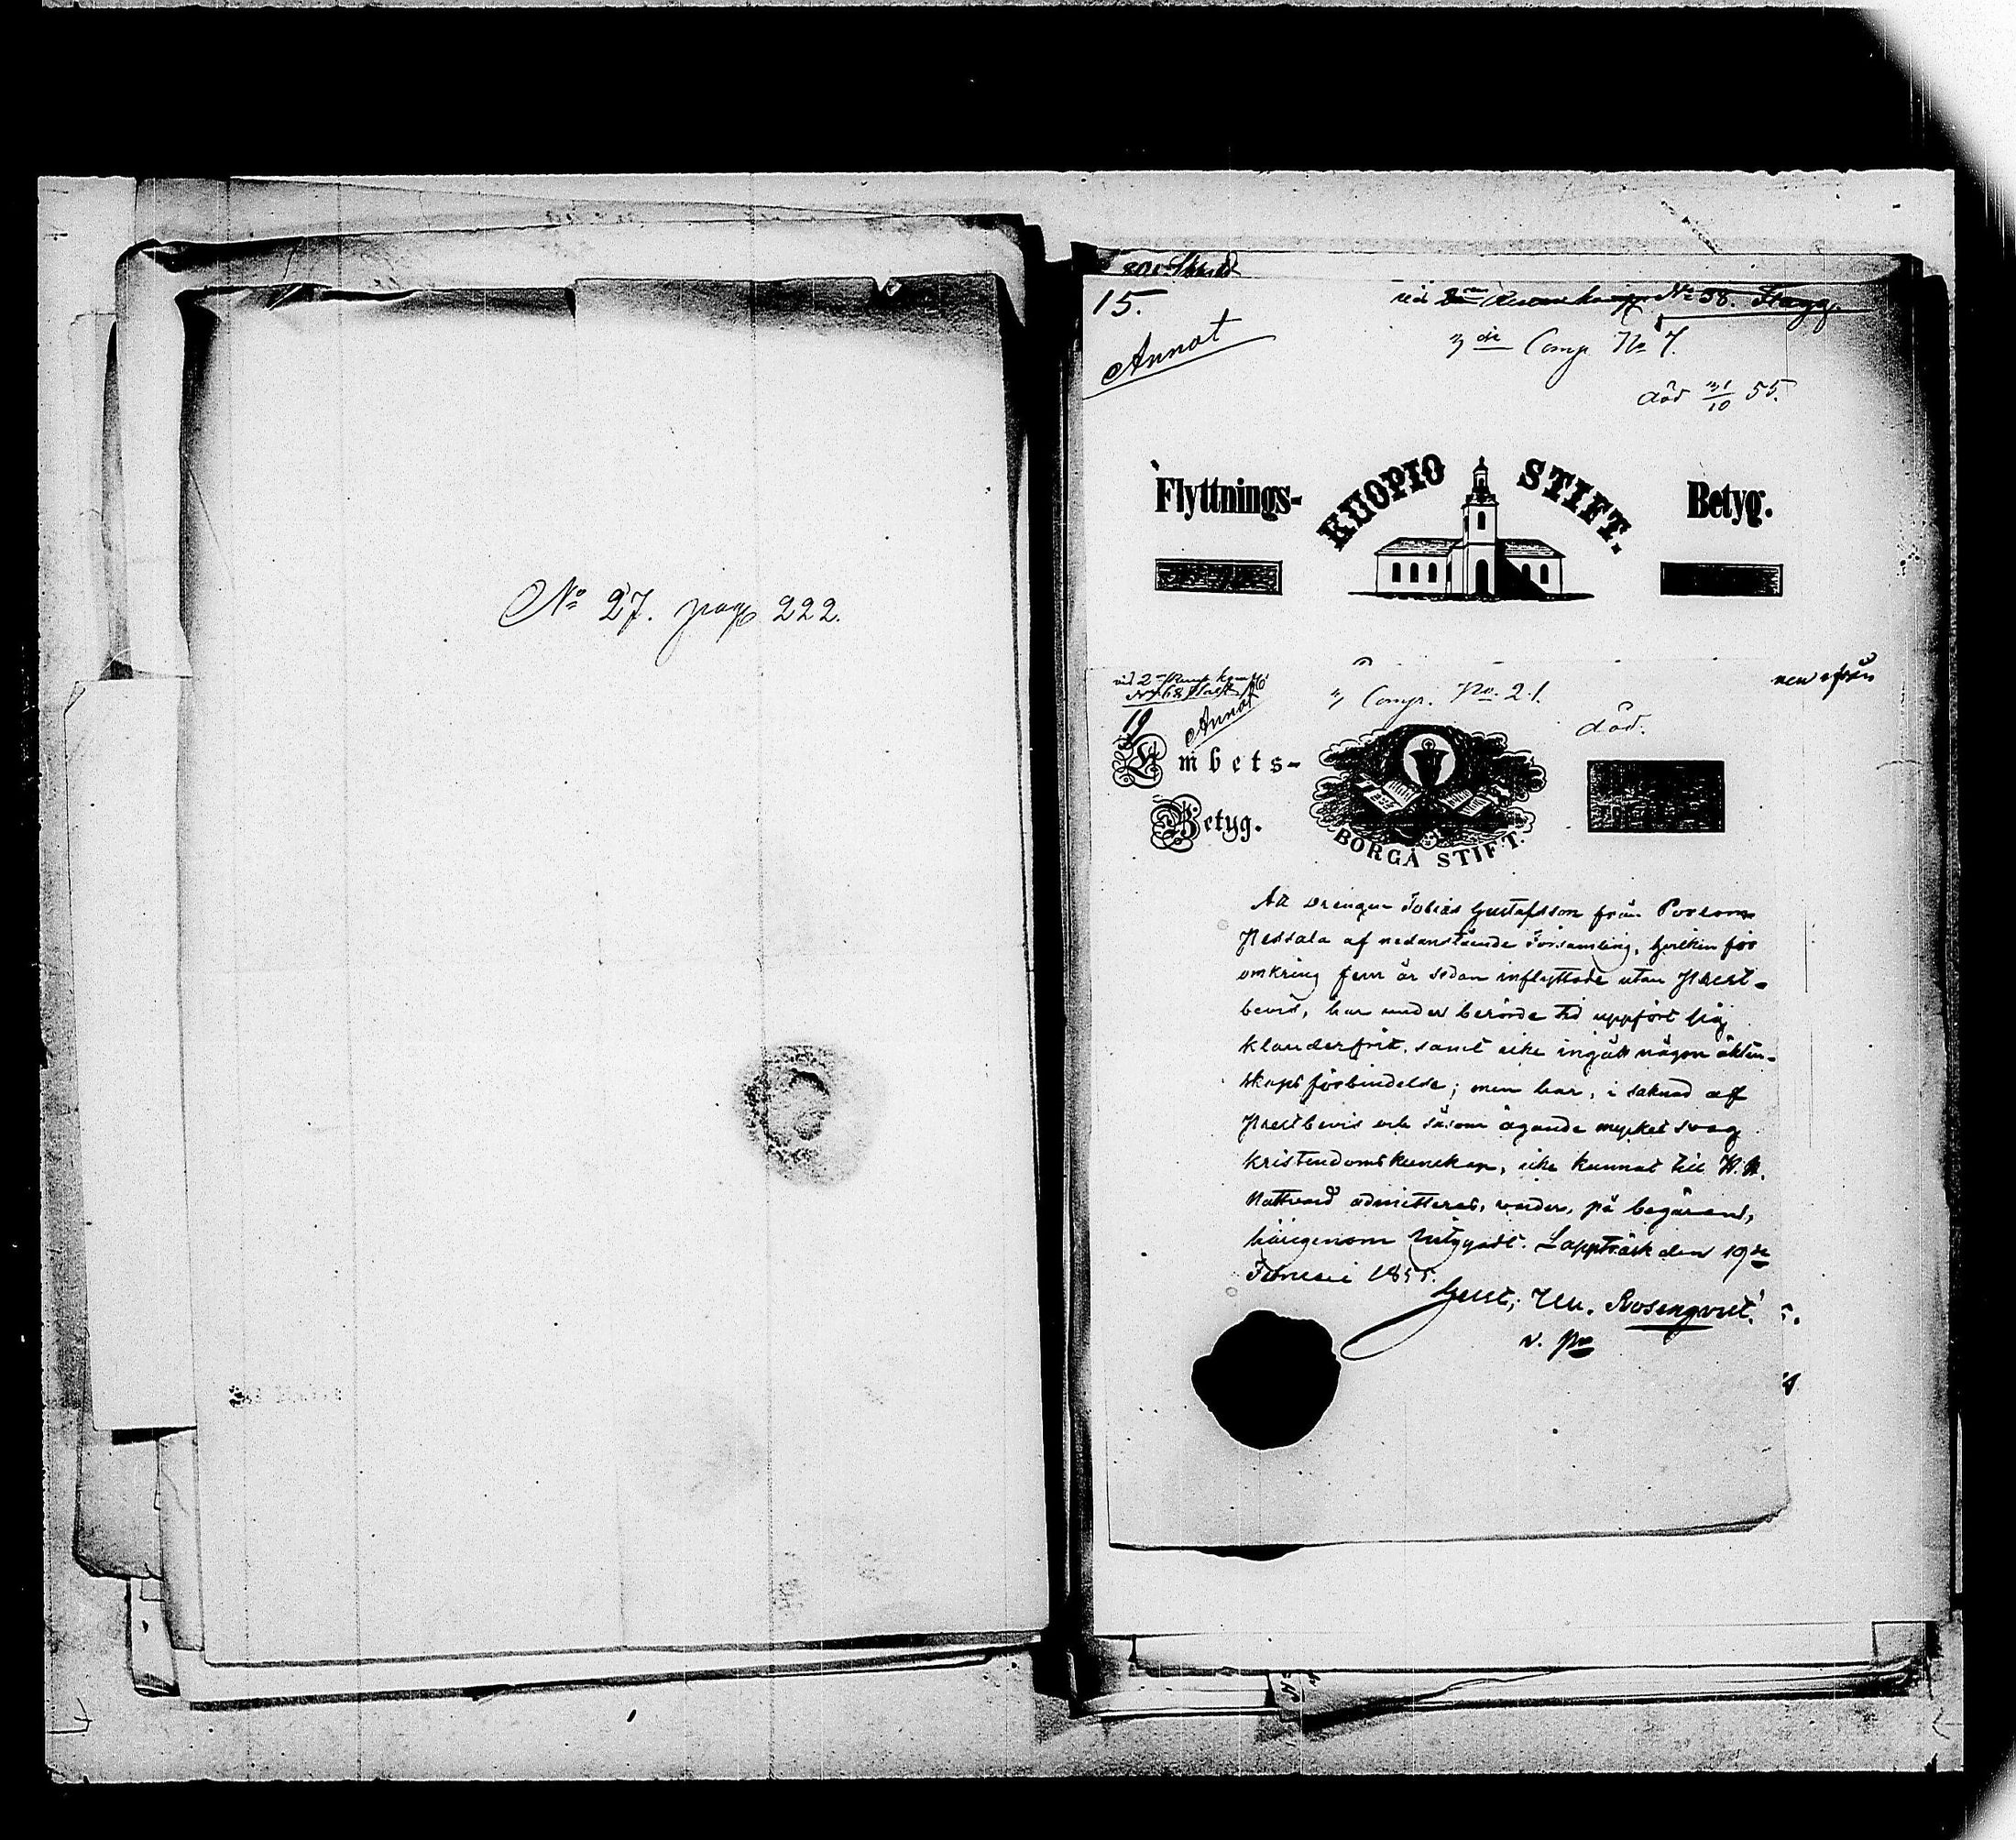 No 27. pag 222.
15.
Annot
vid No 38. Stagg.
3 die Comp No 7.
död 31/10 55.
Flyttnings- KUOPIO STIFT. Betyg.
vid 2
No 68
19
Annot
3 Comp. No. 21.
död.
Embets-
Betyg.
BORGÅ STIFT.
Att Drengen Tobias Gustafsson från Porlom
af nedanstående Församling, hvilken för
omkring fem år sedan inflyttade utan Prest-
bevis, har under berörde tid uppfört sig
klanderfritt, samt icke ingått någon äkten-
skapsförbindelse; men har, i saknad af
Prestbevis och såsom ägande mycket svag
kristendomskunskap, icke kunnat till H. H.
Nattvard admitteras, varder, på begäran,
härigenom betygadt. Lappträsk den 19de
Februari 1855.
Gust. Rosenqvist.
v. p